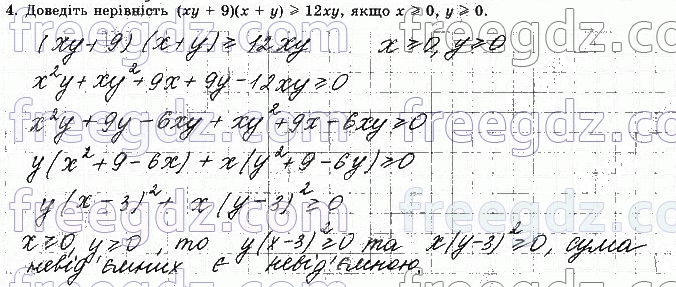 4. Доведіть нерівність (xy + 9)(x + y) ⩾ 12xy, якщо x ⩾ 0, y ⩾ 0.
(xy+9)(x+y)≥12xy x≥0, y≥0
x²y+xy²+9x+9y-12xy≥0
x²y+9y-6xy+xy²+9x-6xy≥0
y(x²+9-6x)+x(y²+9-6y)≥0
y(x-3)²+x(y-3)²≥0
x≥0, y≥0, то y(x-3)²≥0 та x(y-3)²≥0, сума
невід'ємних є невід'ємною
freegdz.com